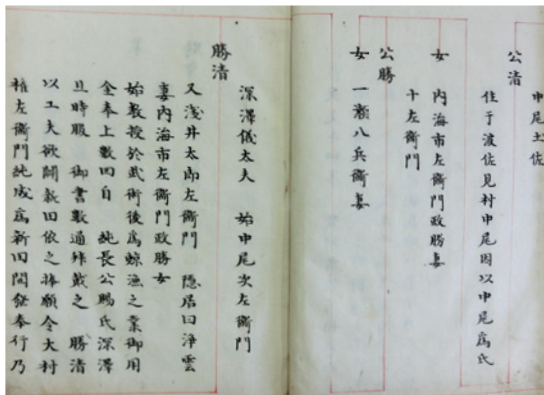 中尾土佐
公清
住于波佐見村中尾因以中尾爲氏
女 内海市左衛門政勝妻
十左衛門
公勝
女 一瀬八兵衛妻
深澤儀太夫 始中尾次左衛門
勝清
又浅井太郎左衛門 隠居曰浄雲
妻内海市左衛門政勝女
始教授於武術後爲鯨漁之業御用
金奉上數回自 純長公賜氏深澤
且時服 御書數通拝戴之 勝清
以工夫欲闢新田依之捧願令大村
権左衛門純成爲新田開發奉行乃